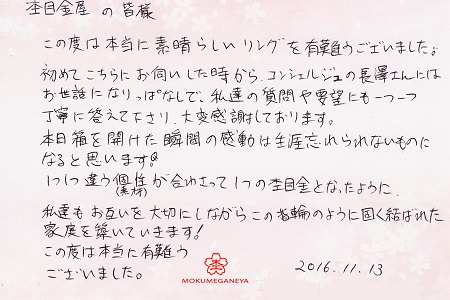 杢目金屋 の 皆様
この度は本当に素晴らしい リングを有難うございました。
初めてこちらにお伺いした時から、コンシェルジュの長澤さんには
お世話になりっぱなしで、私達の質問や要望にも一つ一つ
丁寧に答えて下さり、大変感謝しております。
本日箱を開けた瞬間の感動は生涯忘れられないものに
なると思います!
1つ1つ違う個性(素材)が合わさって1つの杢目金となったように、
私達もお互いを大切にしながらこの指輪のように固く結ばれた
家庭を築いていきます!
この度は本当に有難う
ございました。
MOKUMEGANEYA
2016.11.13